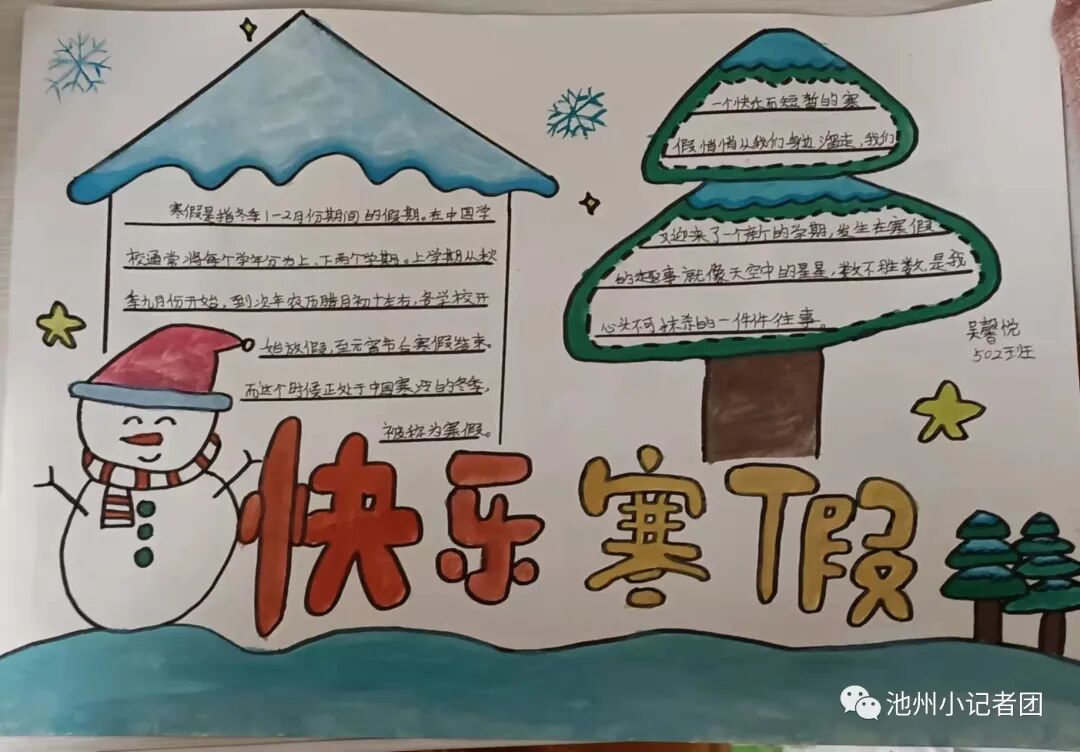 寒假是指冬季1-2月份期间的假期。在中国学
校通常将每个学年分为上、下两个学期。上学期从秋
季九月份开始，到次年农历腊月初十左右，各学校开
始放假，至元宵节后寒假结束。
而这个时候正处于中国寒冷的冬季，
被称为寒假。
一个快乐而短暂的寒
假悄悄从我们身边溜走，我们
又迎来了一个新的学期，发生在寒假
的趣事就像天空中的星星，数不胜数，是我
心头不可抹杀的一件件往事。
吴馨悦
502班
快乐寒假
池州小记者团